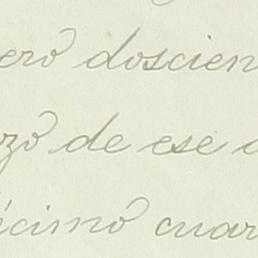 ero doscien
zo de ese a
écimo cuar